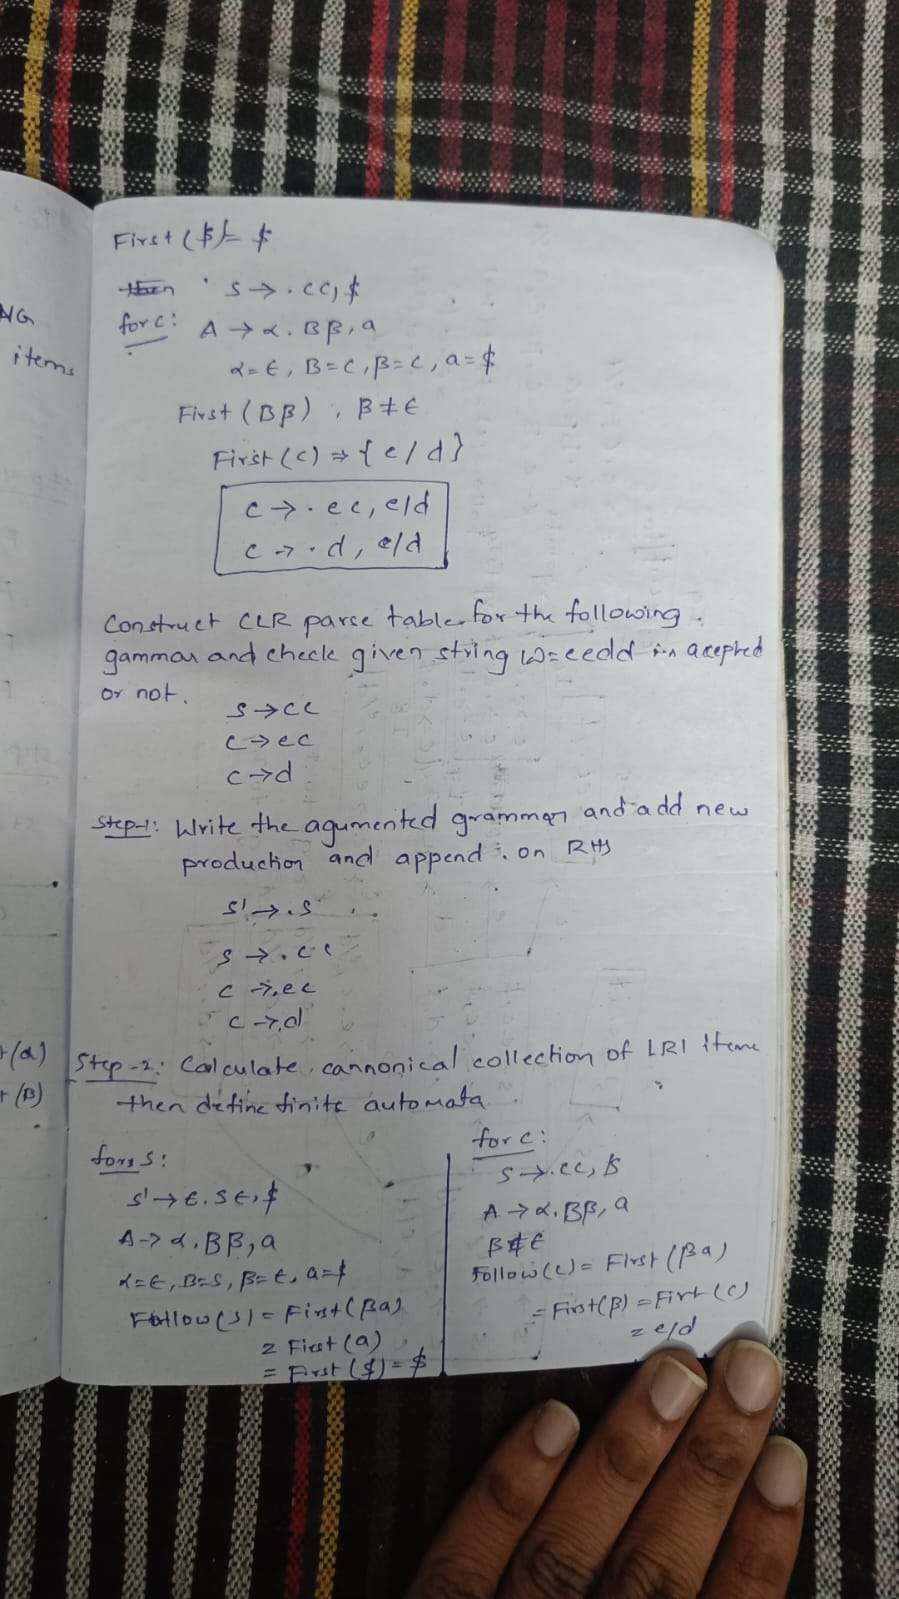 NG
items
t(α)
t(β)
First ($)= $
S → . CC, $
for c: A → α . B β, a
α = ε, B = C, β = C, a = $
First (Bβ) , β ≠ ε
First (C) ⇒ { e / d }
C → . eC, e/d
C → . d, e/d
Construct CLR parse table for the following .
gammar and check given string w=eedd is acepted
or not.
S → CC
C → eC
C → d
Step-1: Write the agumented grammar and add new
production and append . on RHS
S' → . S
S → . CC
C → . eC
C → . d
Step-2: Calculate cannonical collection of LR1 items
then define finite automata
for s:
S' → ε . S ε, $
A -> α . B β, a
α = ε, B = S, β = ε, a = $
Follow (S) = First (βa)
= First (a)
= First ($) = $
for c:
S → . CC, $
A → α . Bβ, a
β ≠ ε
Follow (C) = First (βa)
= First(β) = Firt (C)
= e/d